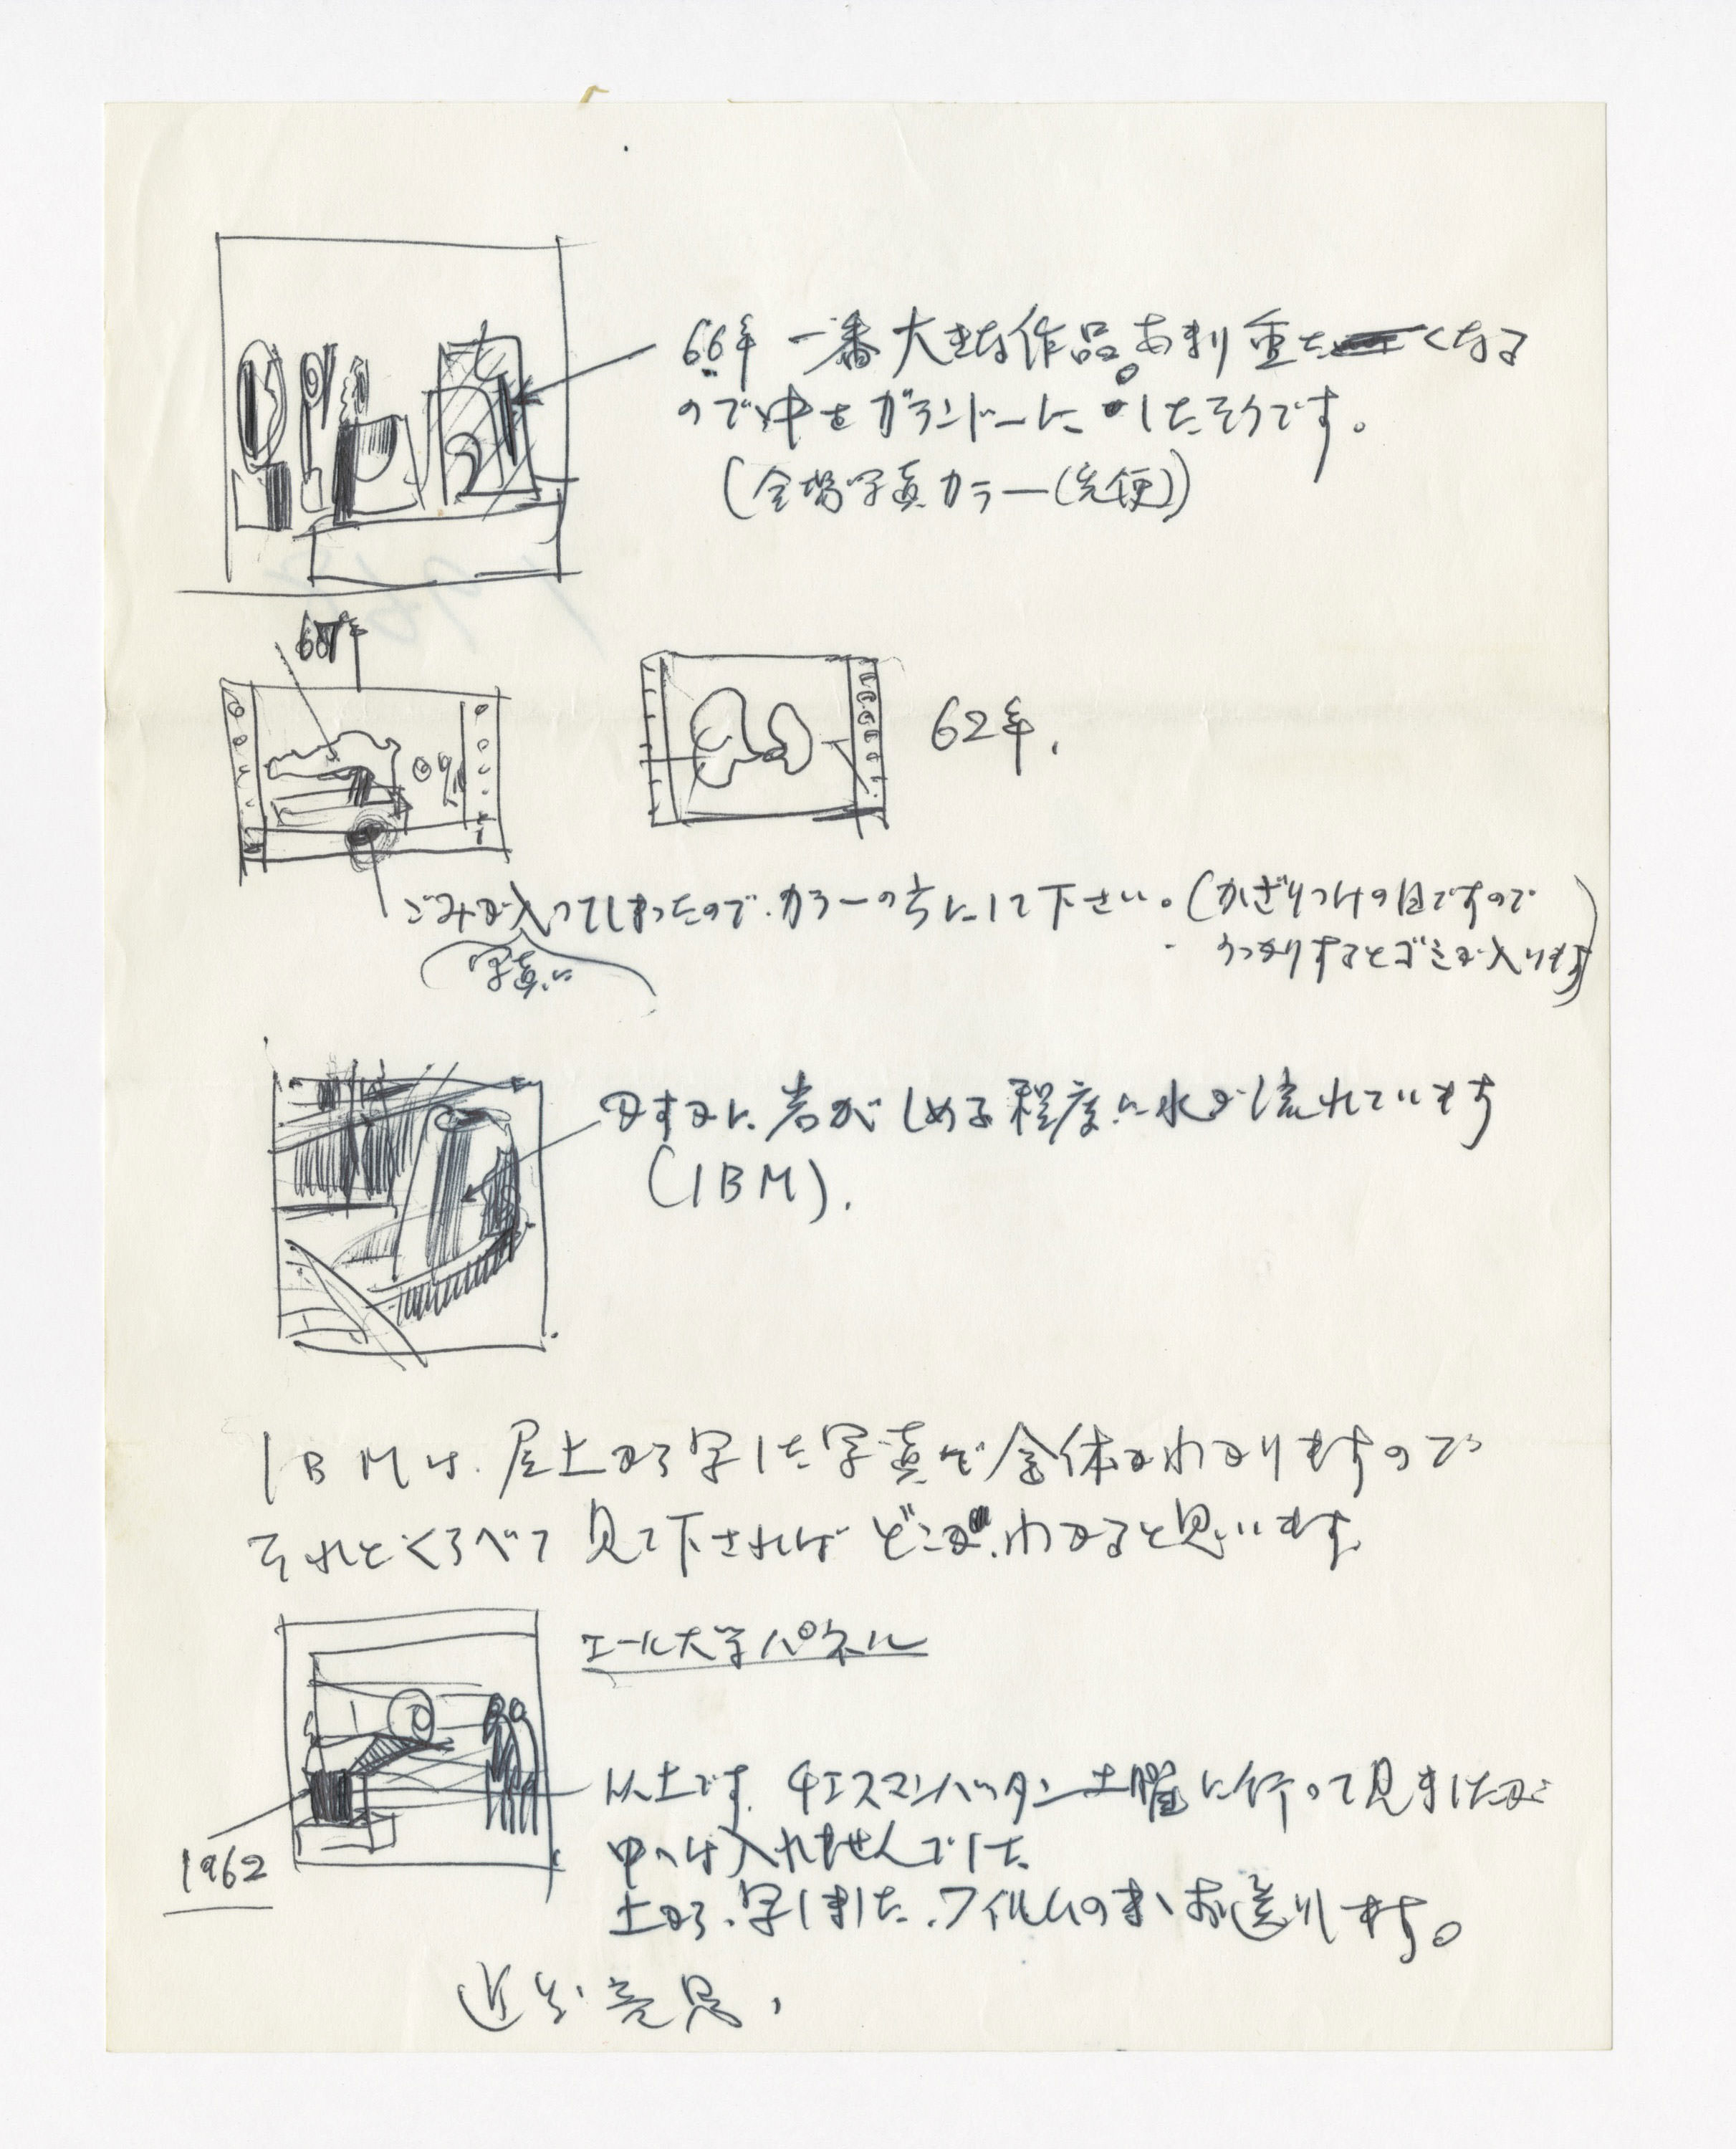 66年 一番大きな作品。あまり重たくなる
ので中をガランドーにしたそうです。
(会場写真カラー(先便))
68年
62年.
ごみが入ってしまったので.カラーの方にして下さい。(かざりつけの日ですので
うっかりするとゴミが入ります)
写真に
かすかに.岩がしめる程度に水が流れています
(IBM).
IBMは.屋上から写した写真で全体がわかりますので
それとくらべて見て下さればどこか.わかると思います.
エール大学パネル
以上です.チエスマンハッタン土曜に行って見ましたが
中へは入れませんでした
上から.写しました.フイルムのまゝお送りします。
1962